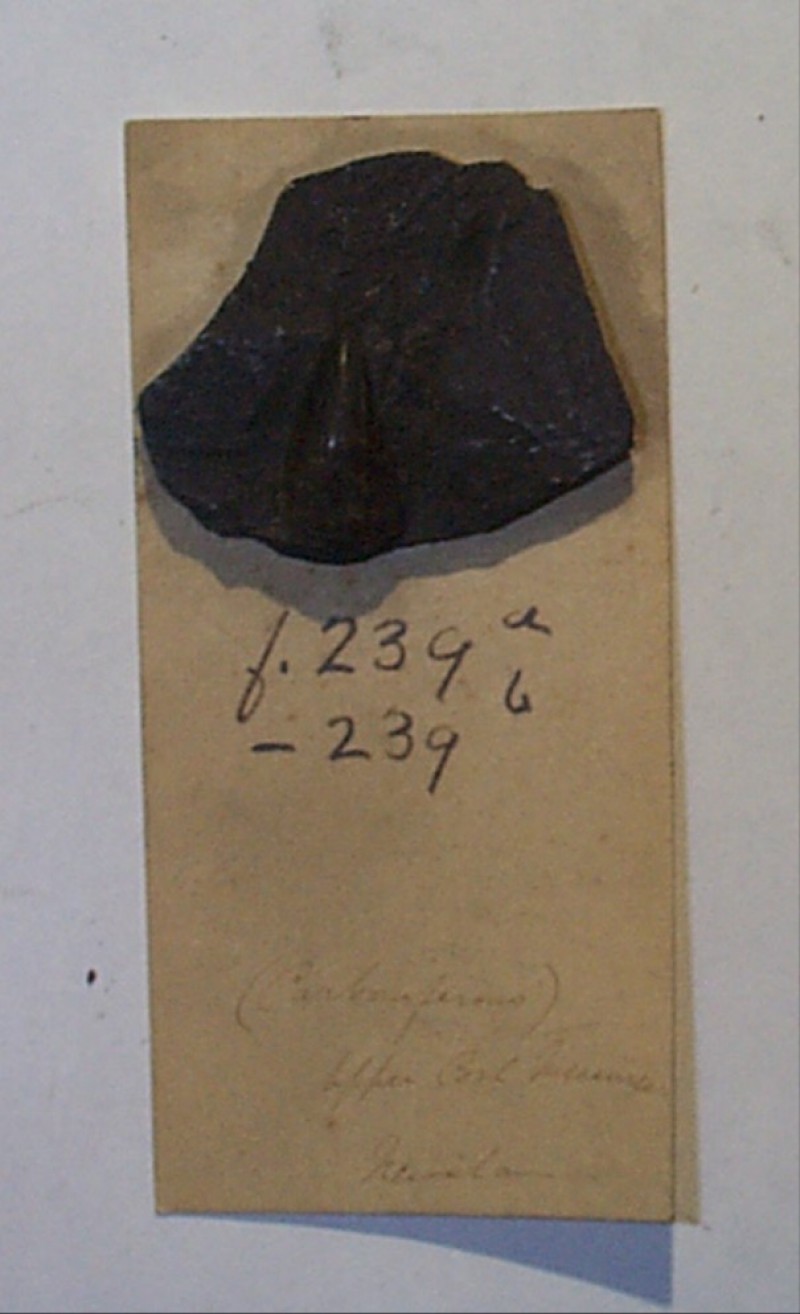 f. 239 a
b
- 239
(Carboniferous)
Upper Coal Measures